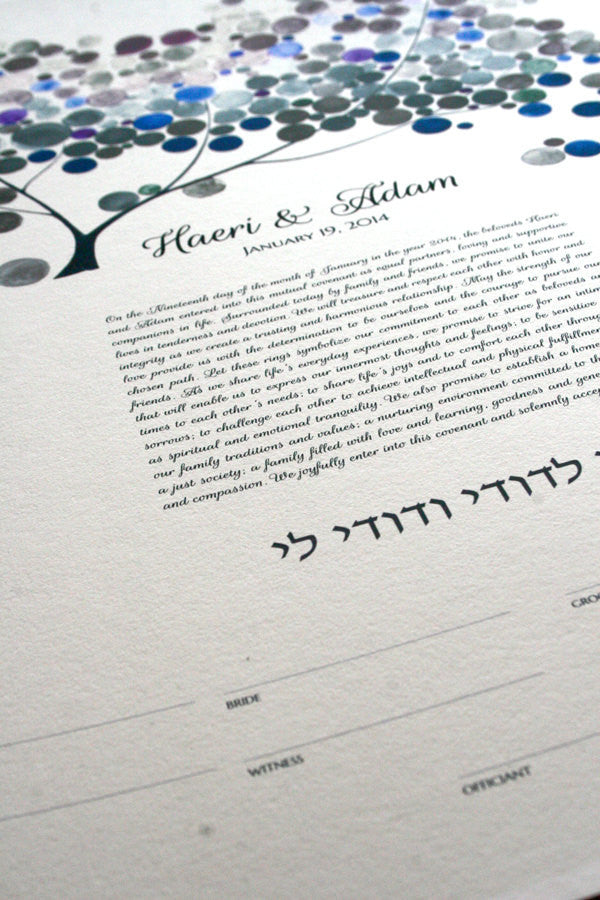 Haeri & Adam
JANUARY 19, 2014
On the Nineteenth day of the month of January in the year 2014, the beloveds Haeri
and Adam entered into this mutual covenant as equal partners, loving and supportive
companions in life. Surrounded today by family and friends, we promise to unite our
lives in tenderness and devotion. We will treasure and respect each other with honor and
integrity as we create a trusting and harmonious relationship. May the strength of our
love provide us with the determination to be ourselves and the courage to pursue our
chosen path. Let these rings symbolize our commitment to each other as beloveds
friends. As we share life's everyday experiences, we promise to strive for an
that will enable us to express our innermost thoughts and feelings; to be sensitive
times to each other's needs; to share life's joys and to comfort each other
sorrows; to challenge each other to achieve intellectual and physical
as spiritual and emotional tranquility. We also promise to establish a home
our family traditions and values; a nurturing environment committed to
a just society; a family filled with love and learning, goodness and
and compassion. We joyfully enter into this covenant and solemnly
לדודי ודודי לי
BRIDE
WITNESS
OFFICIANT